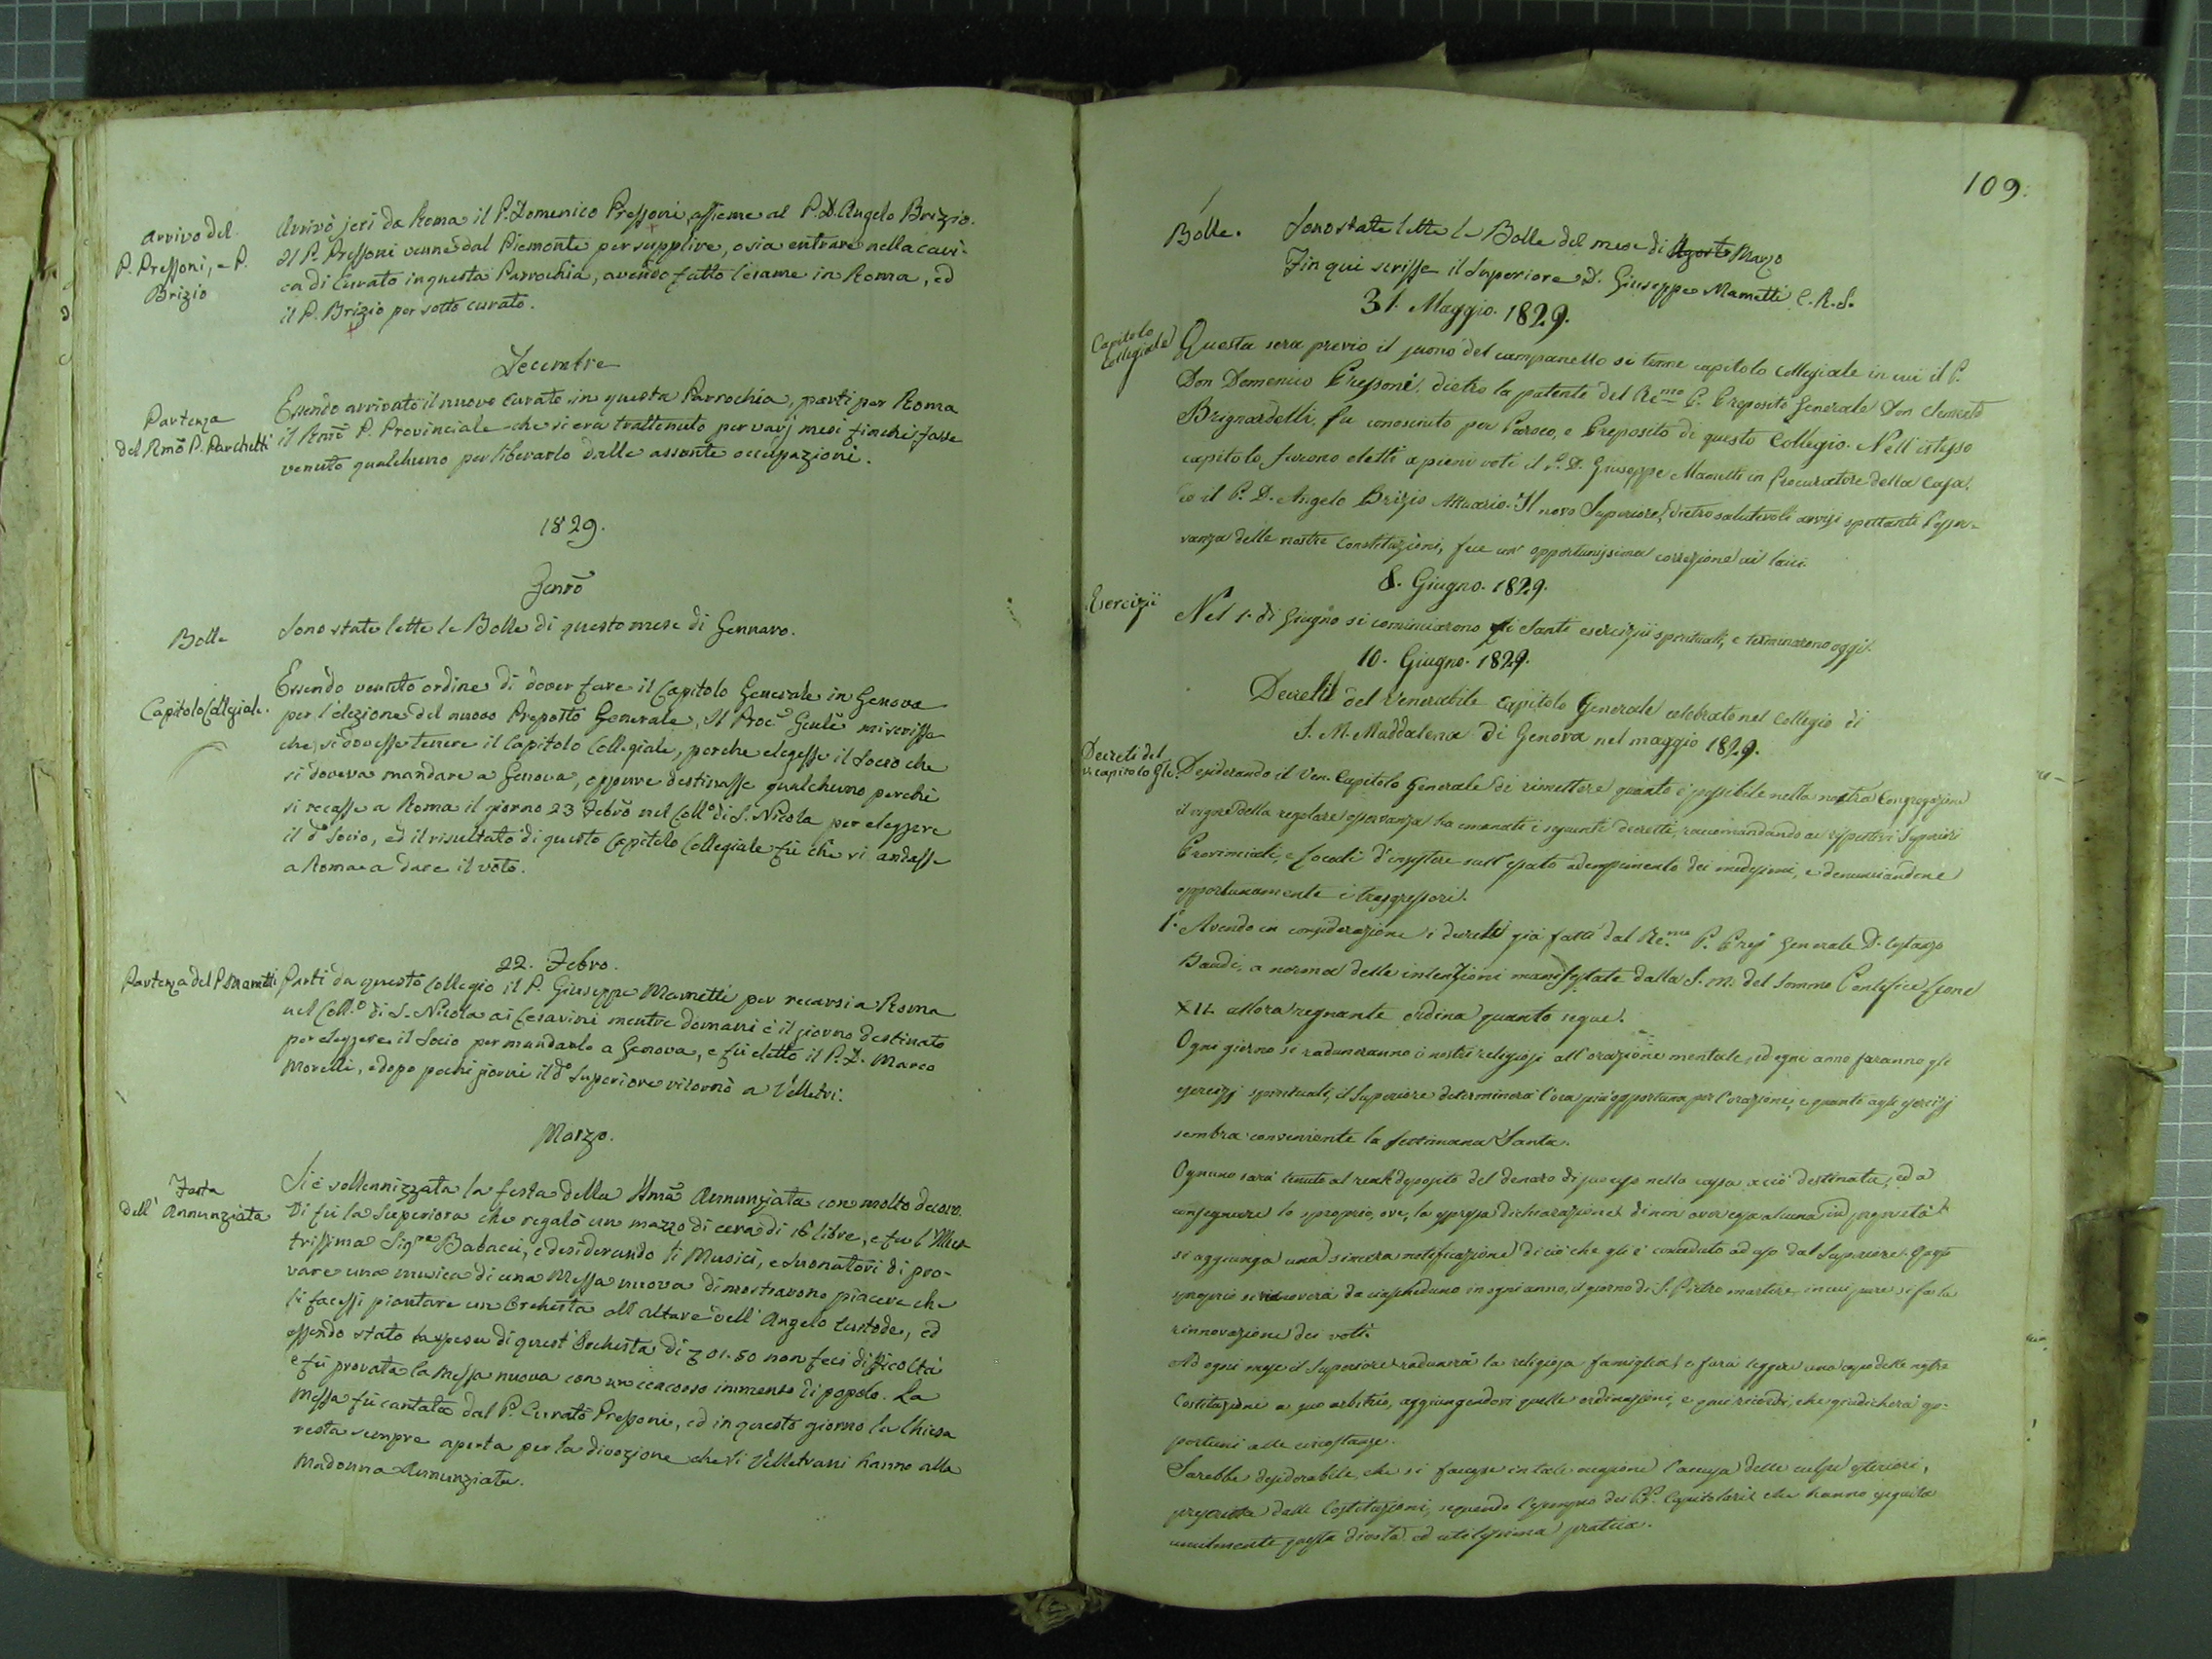 Arrivo del
P. Pressoni, e P.
Brizio
Arrivò jeri da Roma il P. Domenico Pressoni assieme al P. D. Angelo Brizio.
Il P. Pressoni venne dal Piemonte per supplire, o sia entrare nella cari-
ca di Curato in questa Parrochia, avendo fatto l'esame in Roma, ed
il P. Brizio per sotto curato.
Decembre
Partenza
del Rmõ P. Parchetti
Essendo arrivato il nuovo Curato in questa Parrochia, partì per Roma
il Rmõ P. Provinciale che si era trattenuto per varj mesi finchè fosse
venuto qualcheuno per liberarlo dalle assonte occupazioni.
1829.
Genrõ
Bolle
Sono state lette le Bolle di questo mese di Gennaro.
Capitolo Collegiale.
Essendo venuto ordine di dover fare il Capitolo Generale in Genova
per l'elezione del nuovo Preposto Generale, Il Proc.e Gnlẽ mi scrisse
che si dovesse tenere il Capitolo Collegiale, perche elegesse il Socio che
si doveva mandare a Genova, oppure destinasse qualcheuno perchè
si recasse a Roma il giorno 23 Febrõ nel Coll.o di S. Nicola per eleggere
il d.o Socio, ed il risultato di questo Capitolo Collegiale fù che vi andasse
a Roma a dare il voto.
22. Febro.
Partenza del P. Mametti
Partì da questo Collegio il P. Giuseppe Mametti per recarsi a Roma
nel Coll.o di S. Nicola ai Cesarini mentre domani è il giorno destinato
per eleggere il Socio per mandarlo a Genova, e fù eletto il P. D. Marco
Morelli, e dopo pochi giorni il d.o Superiore ritornò a Velletri.
Marzo.
Festa
dell' Annunziata
Si è sollennizzata la festa della SSmã Annunziata con molto decoro.
Vi fù la Superiora che regalò un mazzo di cera di 16 libre, e fu l'Illus-
trissima Sig.ra Babacci, e desiderando li Musici, e suonatori di pro-
vare una musica di una Messa nuova dimostrarono piacere che
si facessi piantare un Orchesta all'altare dell'Angelo Custode, ed
essendo stato la spesa di quest'Orchesta di 01.50 non feci difficoltà
e fù provata la Messa nuova con un concorso immenso di popolo. La
Messa fù cantata dal P. Curato Pressoni, ed in questo giorno la Chiesa
resta sempre aperta per la divozione che li Velletrani hanno alla
Madonna Annunziata.
109.
Bolle.
Sono state lette le Bolle del mese di Agosto Marzo
Fin qui scrisse il Superiore D. Giuseppe Mametti C. R. S.
31. Maggio. 1829.
Capitolo
Collegiale
Questa sera previo il suono del campanello si tenne capitolo collegiale in cui il P.
Don Domenico Pressoni, dietro la patente del Re.mo P. Preposito Generale Don Clemente
Brignardelli, fu conosciuto per Paroco, e Preposito di questo Collegio. Nell'istesso
capitolo furono eletti a pieni voti il P. D. Giuseppe Mametti in Procuratore della Casa,
ed il P. D. Angelo Brizio Attuario. Il novo Superiore, dietro salutevoli avvisi spettanti l'osser-
vanza delle nostre Constituzioni, fece un' opportunissima correzione ai laici.
8. Giugno. 1829.
Esercizii
Nel 1. di Giugno si cominciarono gli Santi esercizii spirituali, e terminarono oggi.
10. Giugno. 1829.
Decreti del Venerabile Capitolo Generale celebrato nel Collegio di
S. M. Maddalena di Genova nel maggio 1829.
Decreti del
V. capitolo Gle.
Desiderando il Ven. Capitolo Generale di rimettere quanto è possibile nella nostra Congregazione
il vigore della regolare osservanza ha emanati i seguenti decreti, raccomandando ai rispettivi Superiori
Provinciali, e Locali d'insistere sull'esatto adempimento dei medesimi, e denunciandone
opportunamente i trasgressori.
1.o Avendo in considerazione i decreti già fatti dal Re.mo P. Prep. Generale D.
Baudi, a norma delle intenzioni manifestate dalla S. M. del Sommo Pontefice Leone
XII. allora regnante ordina quanto segue.
Ogni giorno si raduneranno i nostri religiosi all'orazione mentale, ed ogni anno faranno gli
esercizj spirituali, il Superiore determinerà l'ora più opportuna per l'orazione, e quanto agli esercizj
sembra conveniente la settimana Santa.
Ognuno sarà tenuto al reale deposito del denaro di suo uso nella cassa a ciò destinata, ed a
consegnare lo sproprio, ove, la espressa dichiarazione di non aver cosa alcuna in proprietà
si aggiunga una sincera notificazione di ciò che gli è conceduto ad uso dal Superiore. Questo
sproprio si rinoverà da ciascheduno in ogni anno, il giorno di S. Pietro martire, in cui pure si fa la
rinnovazione dei voti.
Ad ogni mese il Superiore radunerà la religiosa famiglia, e farà leggere uno capo delle nostre
Costituzioni a suo arbitrio, aggiungendovi quelle ordinazioni, e quei ricordi, che giudicherà op-
portuni alle circostanze.
Sarebbe desiderabile, che si facesse in tale occasione l'accusa delle culpe esteriori,
prescritta dalle Costituzioni, seguendo l'esempio dei PP. Capitolari che hanno eseguita
umilmente questa divota, ed utilissima pratica.